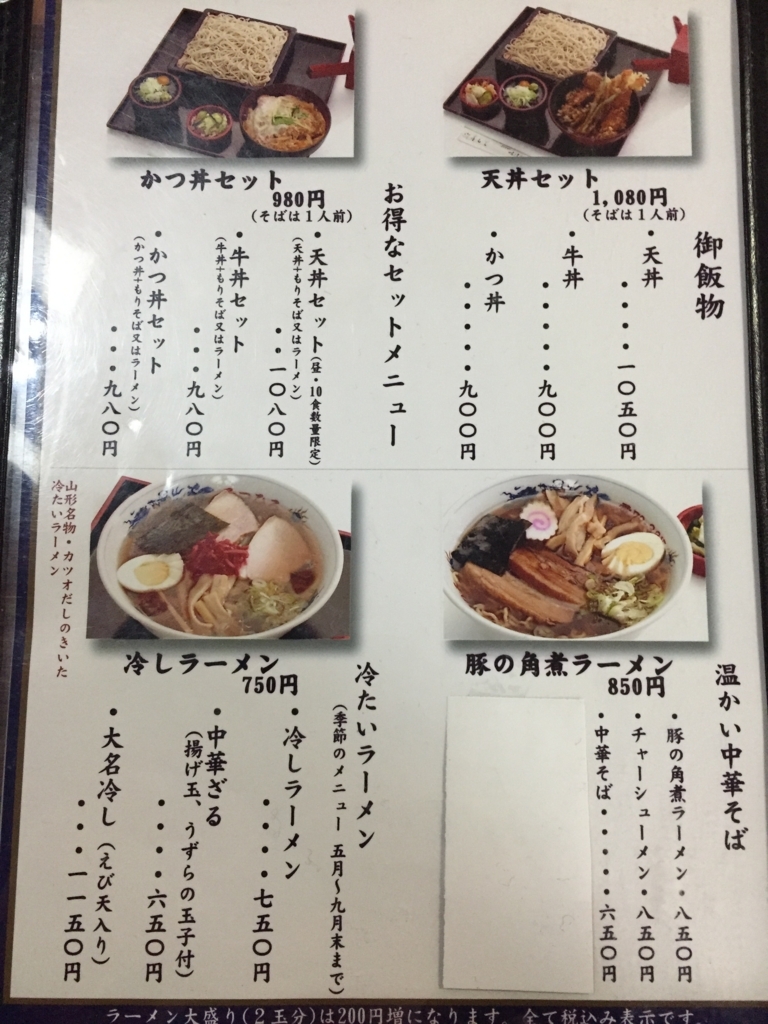 天丼セット
1,080円
(そばは1人前)
かつ丼セット
980円
(そばは1人前)
御飯物
・天丼・・・・・一〇五〇円
・牛丼・・・・・九〇〇円
・かつ丼・・・・・九〇〇円
お得なセットメニュー
・天丼セット(昼・10食数量限定)
(天丼+もりそば又はラーメン)
・・・一〇八〇円
・牛丼セット
(牛丼+もりそば又はラーメン)
・・・九八〇円
・かつ丼セット
(かつ丼+もりそば又はラーメン)
・・・九八〇円
豚の角煮ラーメン
850円
温かい中華そば
・豚の角煮ラーメン・八五〇円
・チャーシューメン・八五〇円
・中華そば・・・・・六五〇円
冷しラーメン
750円
冷たいラーメン
(季節のメニュー 五月〜九月末まで)
・冷しラーメン
・・・・・七五〇円
・中華ざる
(揚げ玉、うずらの玉子付)
・・・・・六五〇円
・大名冷し(えび天入り)
・・・・・一一五〇円
山形名物・カツオだしのきいた
冷たいラーメン
ラーメン大盛り(2玉分)は200円増になります。全て税込み表示です